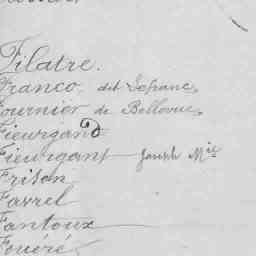 Filatre.
Franco, dit Lefranc,
Fournier de Bellevue,
Fieurgand
Fieurgant Joseph Mie
Frison
Favrel
Fantoux
Foucré